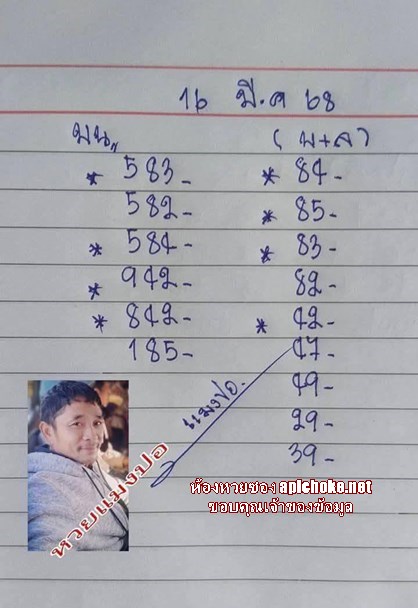 16 มี.ค 68
บน„ (บ+ล)
* 583- * 84-
582- * 85-
* 584- * 83-
* 942- 82-
* 842- * 42-
185- 47-
49-
29-
39-
แมงปอ.
หวยแมงปอ
ห้องหวยซอง apichoke.net
ขอบคุณเจ้าของข้อมูล